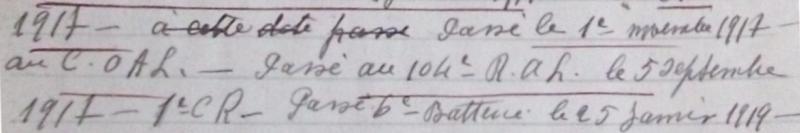 1917 – à cette date passé Passé le 1er novembre 1917 –
au C.O.A.L. – Passé au 104e R.A.L. le 5 septembre
1917 – 1e CR – Passé 6e Batterie le 25 janvier 1919 –